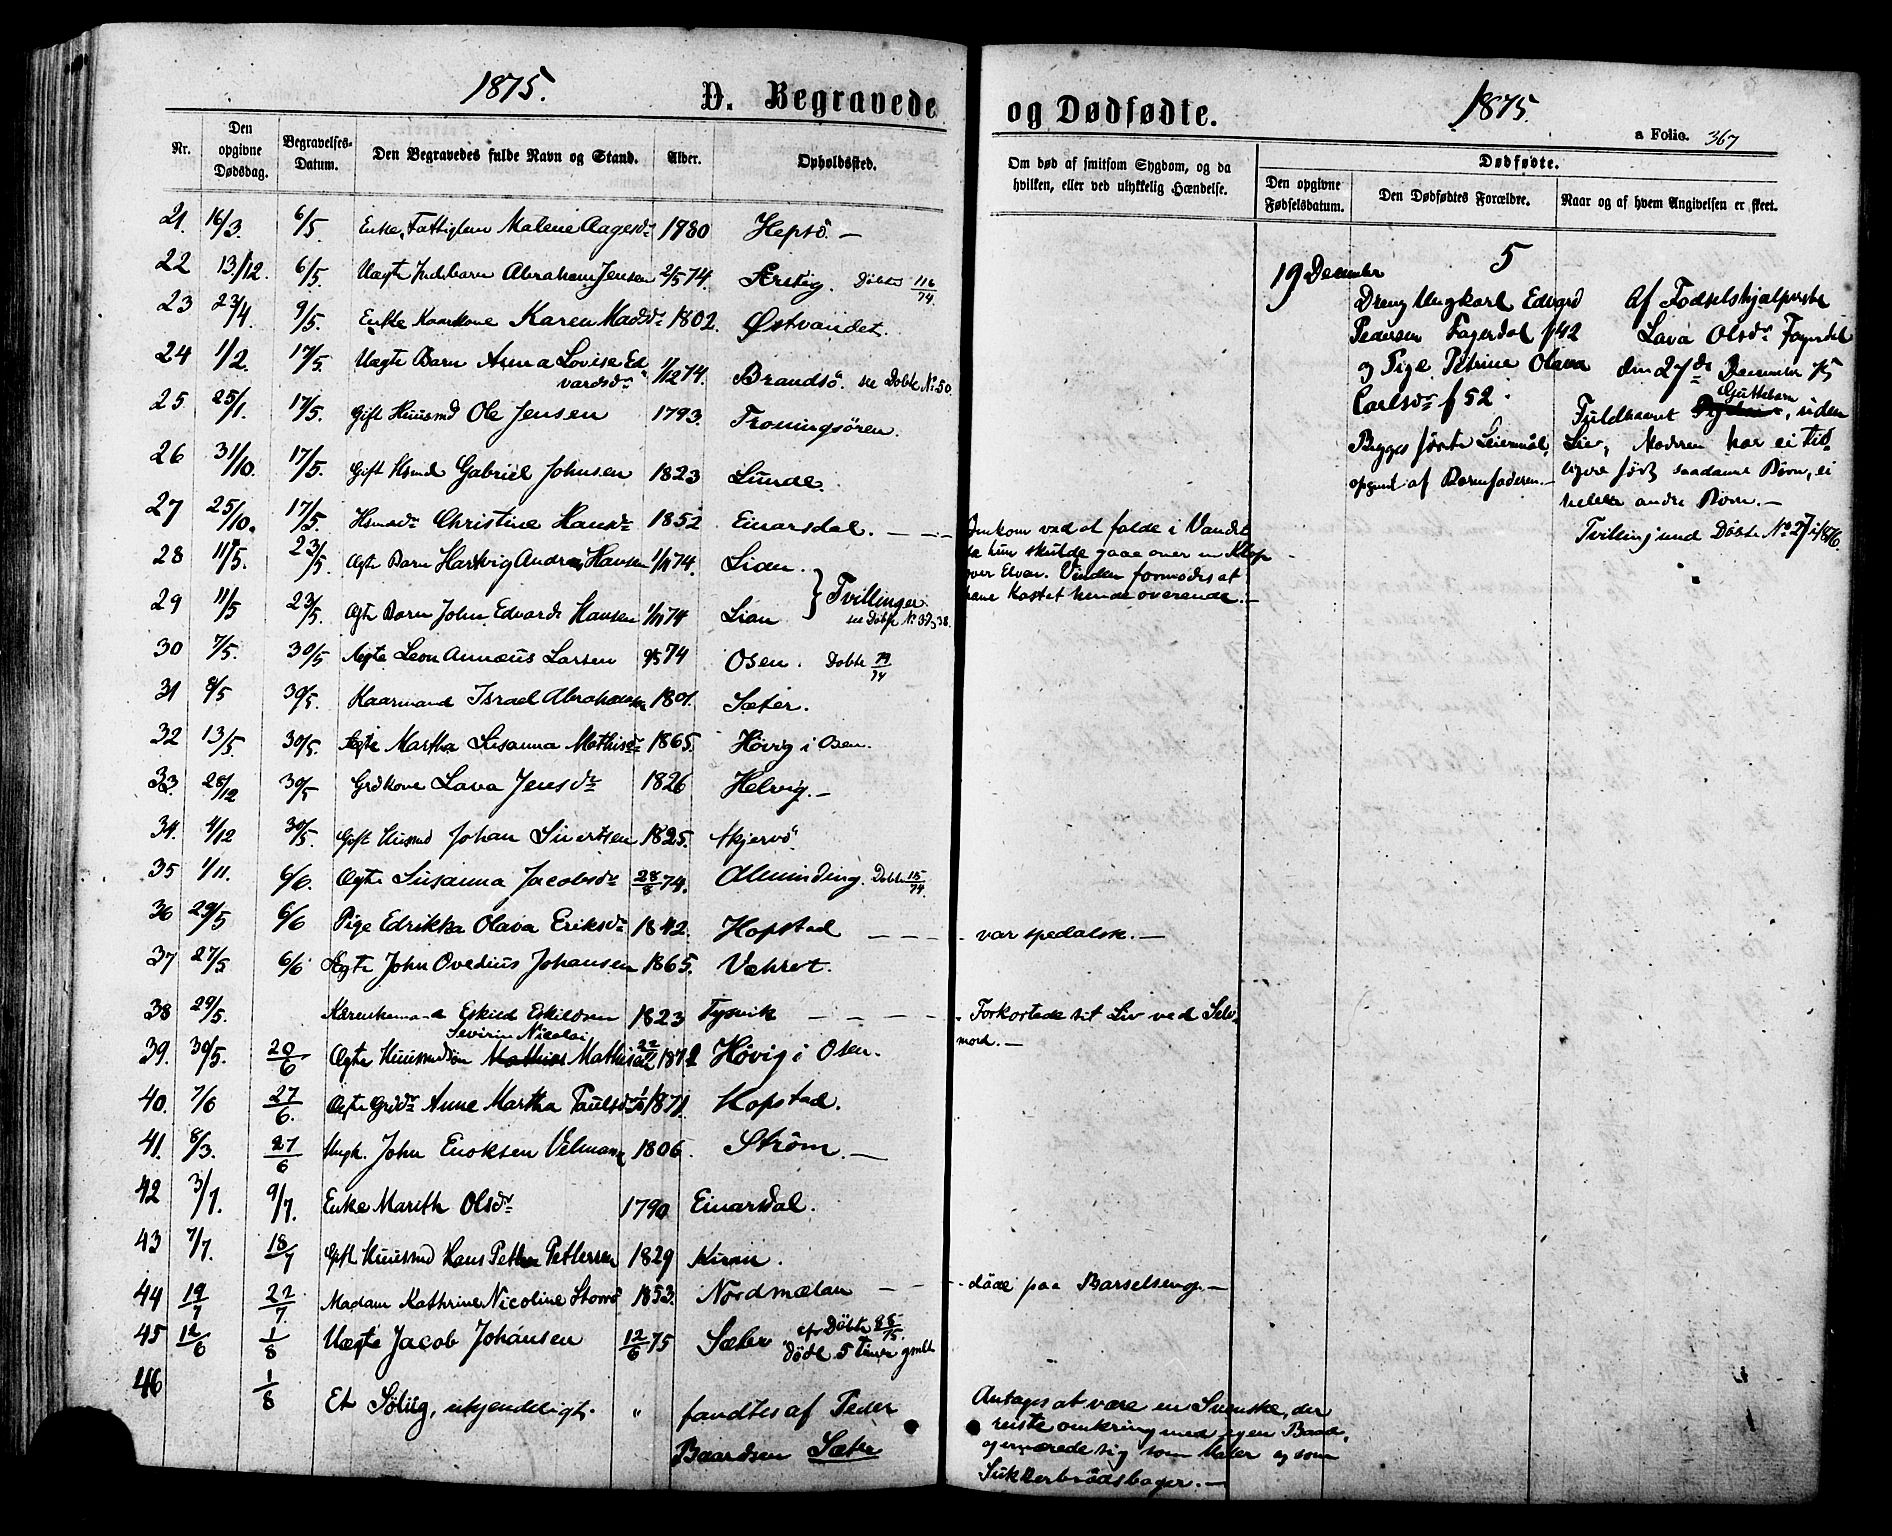 1875.
D. Begravede
Nr.
Den opgivne Dødsdag.
Begravelses-Datum.
Den Begravedes fulde Navn og Stand.
Alder.
Opholdssted.
21. 16/3. 6/5. Enke, Fattiglem Malene Aagesdr 1780 Hepsö. —
22 13/12. 6/5. Uægte Pigebarn Abraham Jensen 2/5 74. Sæstig. Döbte 116/74.
23 23/4. 9/5. Enke Kaarkone Karen Madsdr 1802. Østvandet.
24 1/2. 17/5. Uægte Barn Anna Lovise Ed
vardsdr 1/12 74. Brandsö. see Döbte No 50.
25 25/1. 17/5. Gift Huusmd Ole Jensen 1793. Troningsören.
26 31/10. 17/5. Gift Hsmd Gabriel Johnsen 1823 Lunde.
27 25/10. 17/5. Hsmdsdr Christine Hansdr 1852 Einarsdal. — — —
28 11/5. 23/5. Ægte Barn Hartvig Andreas Hansen 1/11 74. Lian.
29 11/5 23/5. Ægte Barn John Edvard Hansen 1/11 74 Lian } Tvillinger
see Döbte No 37, 38.
30 7/5. 30/5 Ægte Leon Annæus Larsen 9/5 74 Osen. Döbte 79/74
31 8/5 30/5. Kaarmand Israel Abrahamsen 1801. Sæter.
32 13/5. 30/5. Ægte Martha Susanna Mathisdr 1865. Hövig i Osen.
33. 28/12 30/5 Grdkone Lava Jensdr 1826 Helvig. —
34. 4/12 30/5. Gift Husmd Johan Sivertsen 1825. Skjervö
35 1/11. 6/6. Ægte Susanna Jacobsdr 28/8 74. Alminding. Döbte 15/74.
36 29/5 6/6 Pige Edrikka Olava Eriksdr 1842. Hopstad — — —
37 27/5 6/6 Ægte John Ovedius Johansen 1865. Vahret.
38 29/5. Enkemand Eskild Eskildsen 1823 Tysvik — — —
Severin Nicolai
39. 30/5. 20/6 Ægte Huusmdsøn Mathias Mathisen 22/2 1872 Hövig i Osen.
40. 7/6 27/6. Ægte Grdsdr Anne Martha Paulsdr 1871. Hopstad.
41. 8/3. 27/6 Ungk. John Enoksen Velmann 1806. Ström. —
42 3/7. 9/7. Enke Marith Olsdr 1790 Einarsdal.
43 7/7. 18/7 Gift Huusmd Hans Petter Pettersen 1829 Kiran.
44 19/7 22/7. Madam Kathrine Nicoline Storrö 1853. Nordmælan — —
45 12/6 1/8 Uægte Jacob Johansen 12/6 75 Sæter cfr Döbte 88/75.
döde 5 Timer gmlt
46 1/8 Et Sölig, ukjendeligt. " fandtes af Peder
Baardsen Sæter
og Dødfødte.
1875.
a Folio. 367
Om død af smitsom Sygdom, og da hvilken, eller ved ulykkelig Hændelse.
Dødfødte.
Den opgivne Fødselsdatum.
Den Dødfødtes Forældre.
Naar og af hvem Angivelsen er skeet.
5
19 December
Dreng Ungkarl Edvard
Pedersen Fagerdal f 42
og Pige Petrine Olava
Carlsdr f 52.
Begges første Leiermål,
opgivet af Barnefaderen. —
Af Fødselshjælperske
Lava Olsdr Fagerdal
den 27de December 75
Guttebarn
Fuldbaaret, uden
Liv, Moderen har ei tid
ligere født saadant Børn, ei
heller andre Børn. —
Tvilling med Döbte No 27 i 1876.
Omkom ved at falde i Vandet
da hun skulde gaae over en Klop
over Elven. Vinden formodes at
have Kastet hende overende. —
var spedalsk. —
Forkortede sit Liv ved Selv
mord. —
döde paa Barselseng. —
Antages at være en Svenske, der
reiste omkring med egen Baad,
og ernærede sig som Maler og som
Sukkerbrødsbager. —